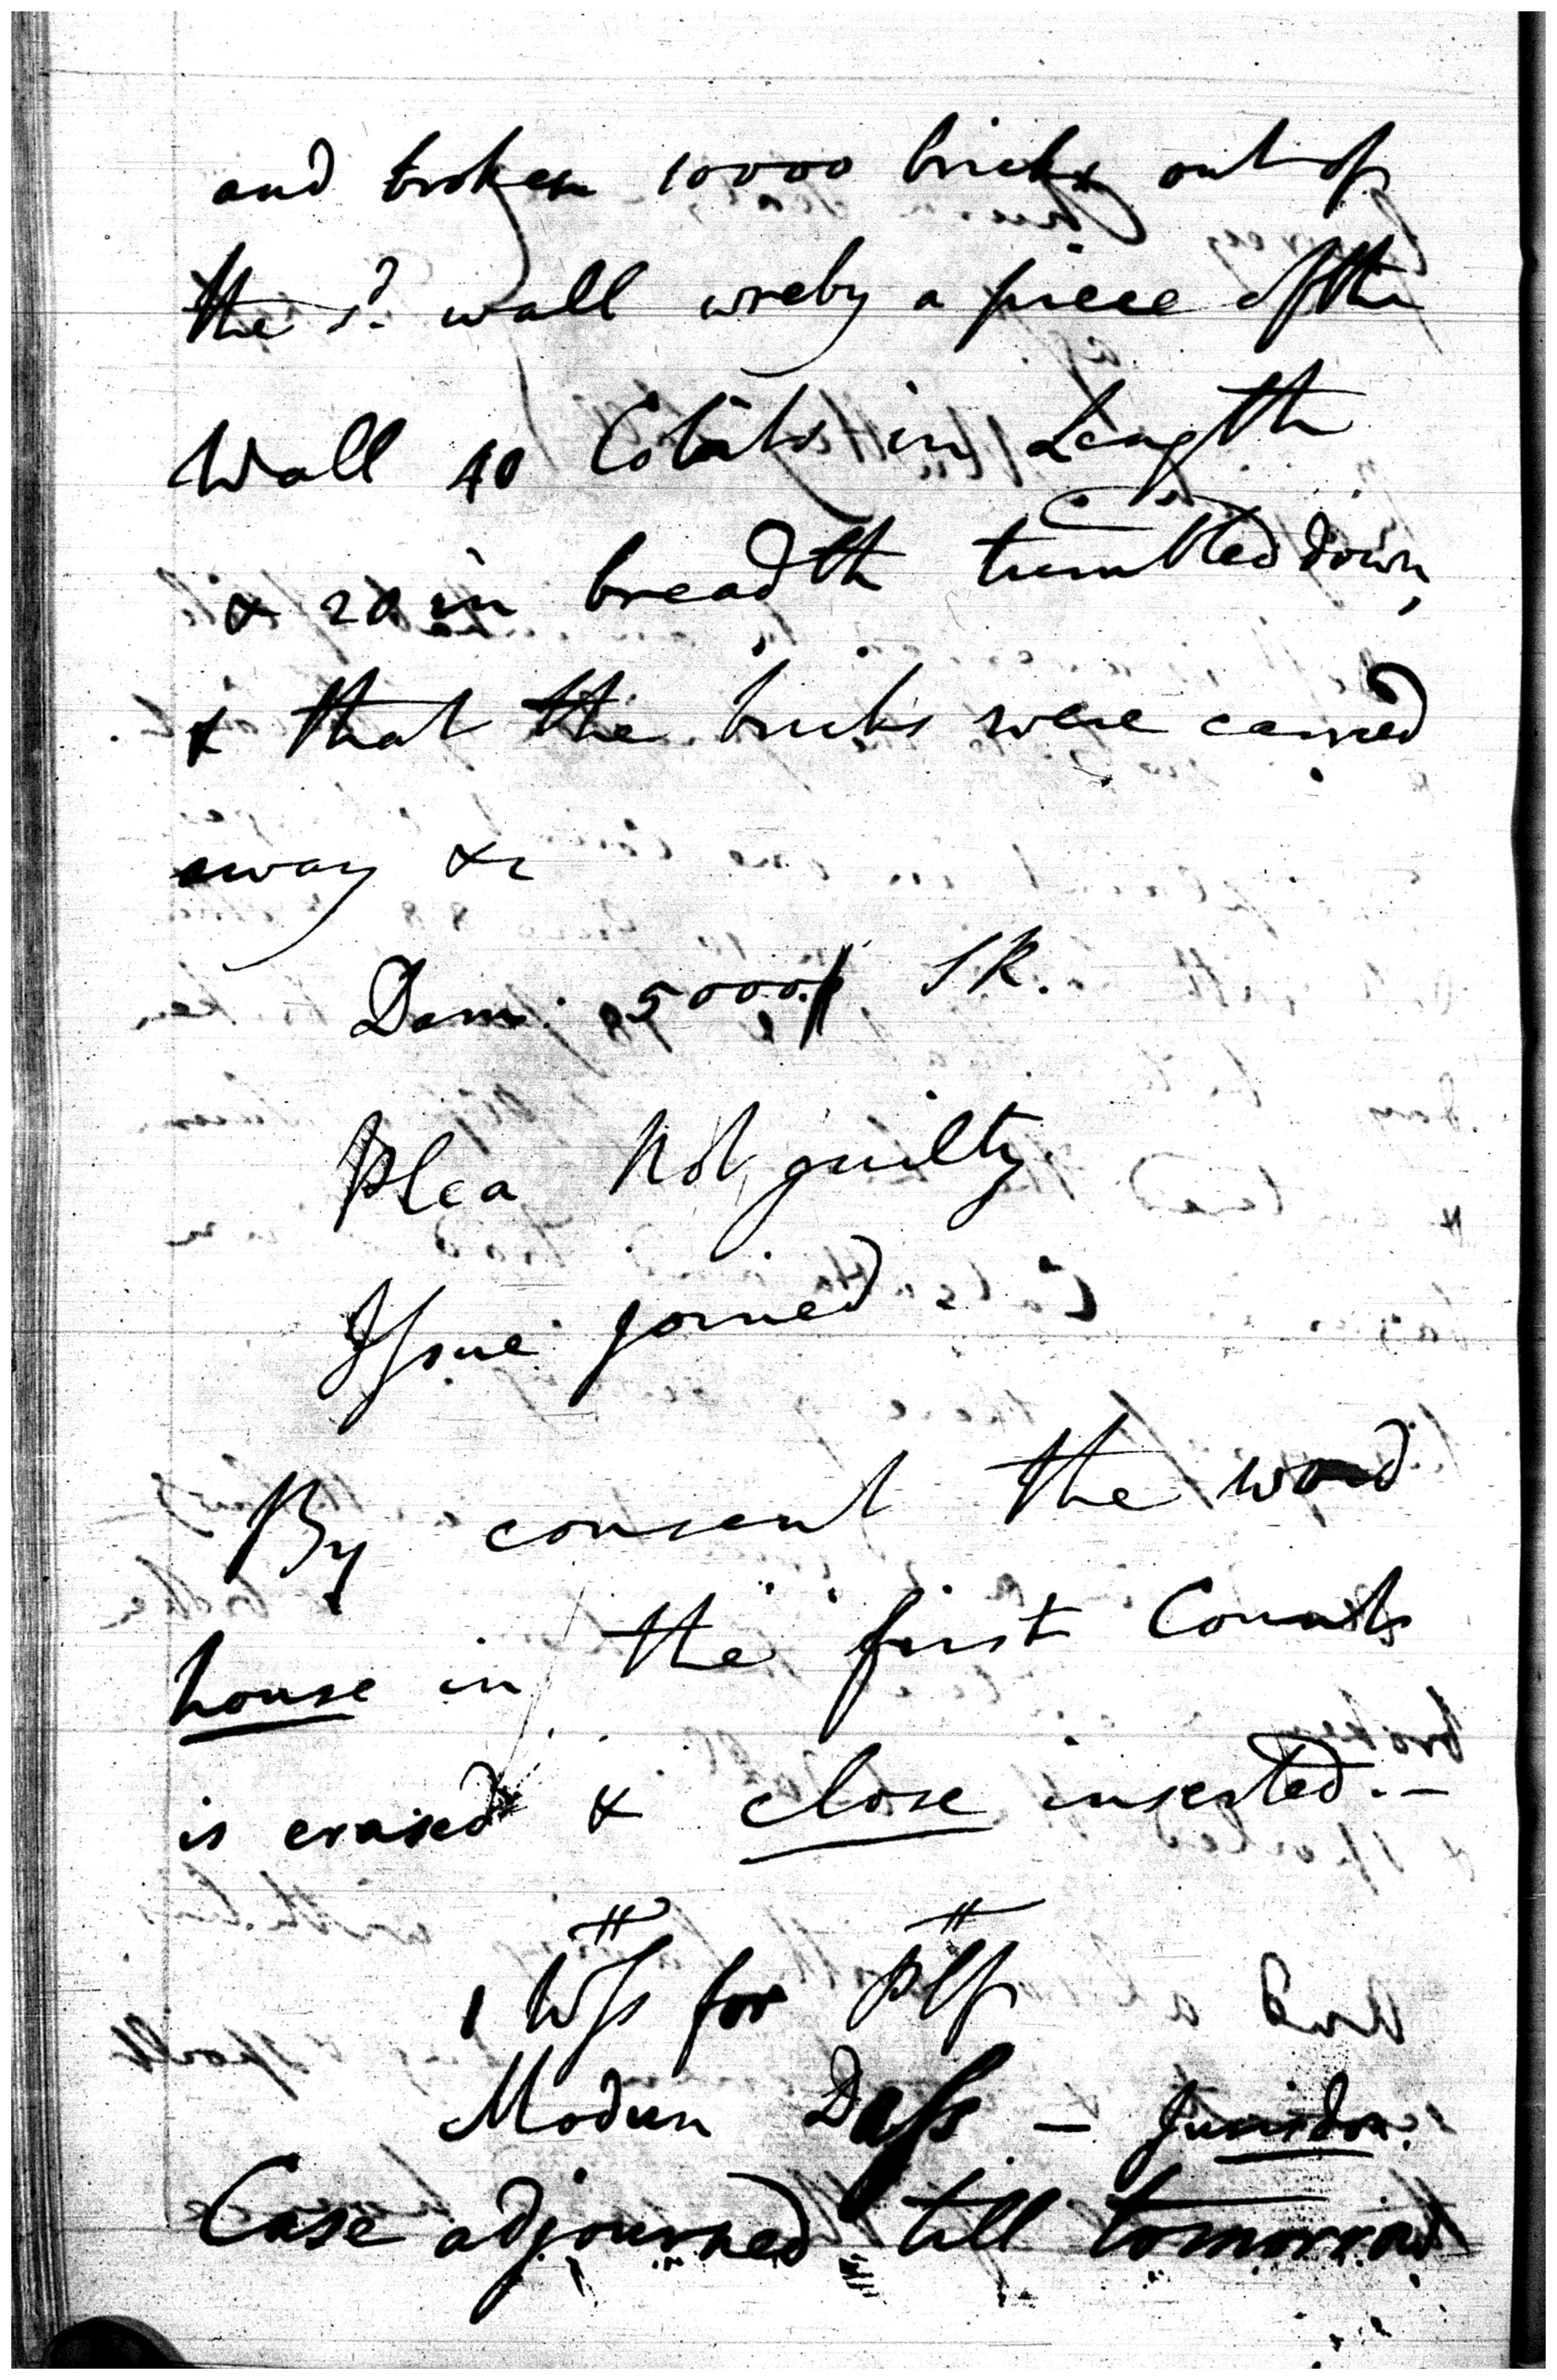 and broken 10000 bricks out of
the sd. wall wreby a piece of the
Wall 40 Cobits in Length
& 20 in breadth tumbled down,
& that the bricks were carried
away &c
Dam: 5000/ SR.
Plea Not guilty
Issue joined
By consent the word
house in the first Counts
is erased & close inserted.—
1 Wss for Plf
Modun Dass — Jurisdon.
Case adjourned till tomorrow